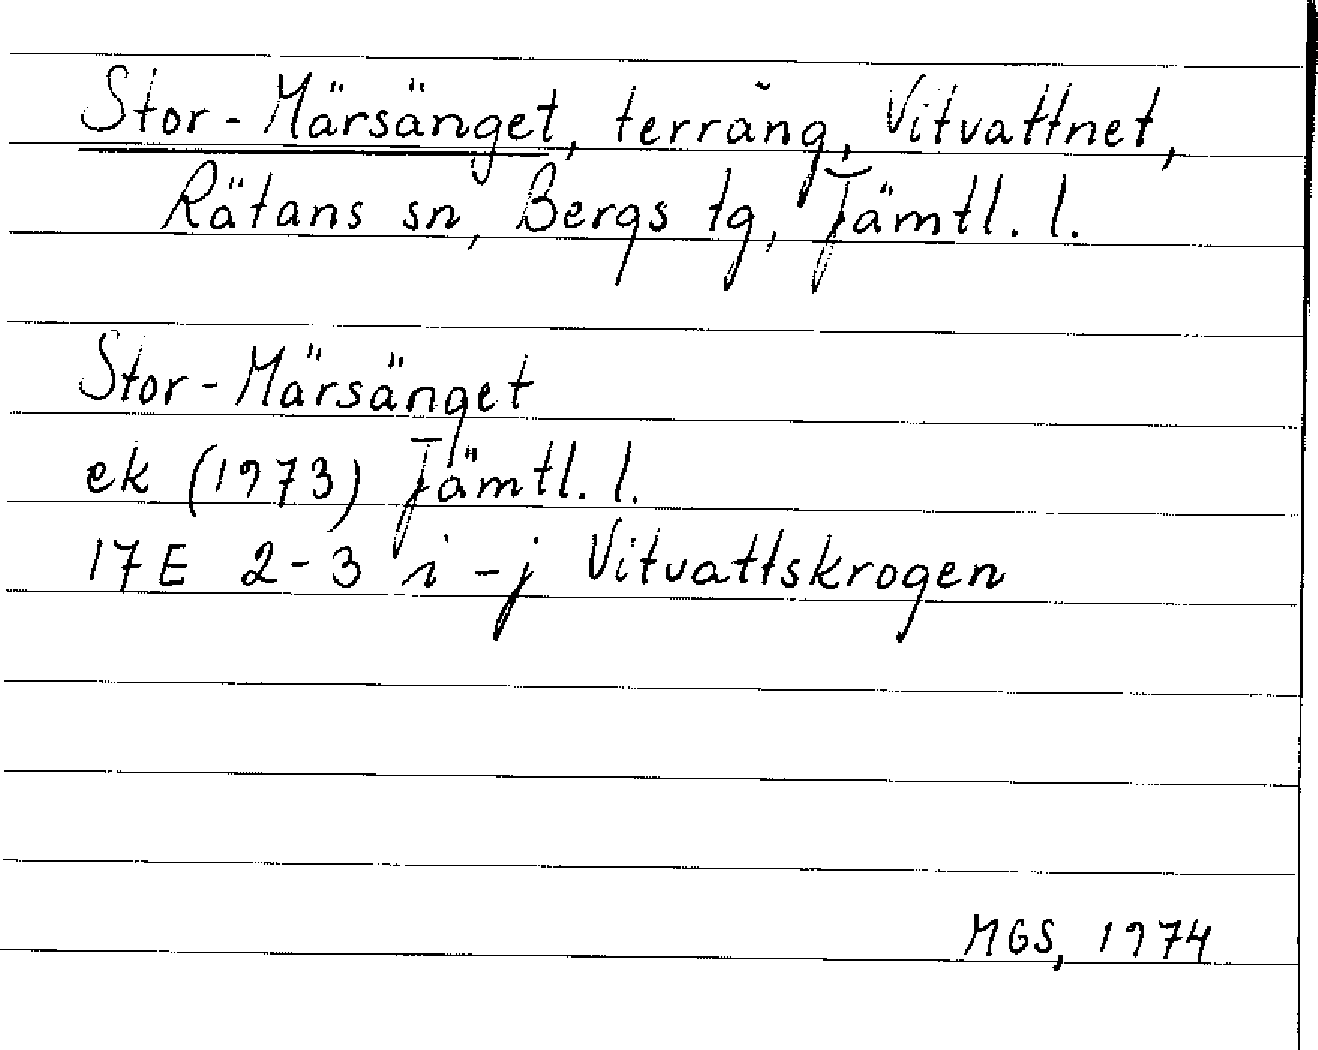 Stor-Märsänget, terräng, Vitvattnet,
Rätans sn, Bergs tg, Jämtl. l.
Stor-Märsänget
ek (1973) Jämtl. l.
17E 2-3 i-j Vitvattskrogen
MGS, 1974